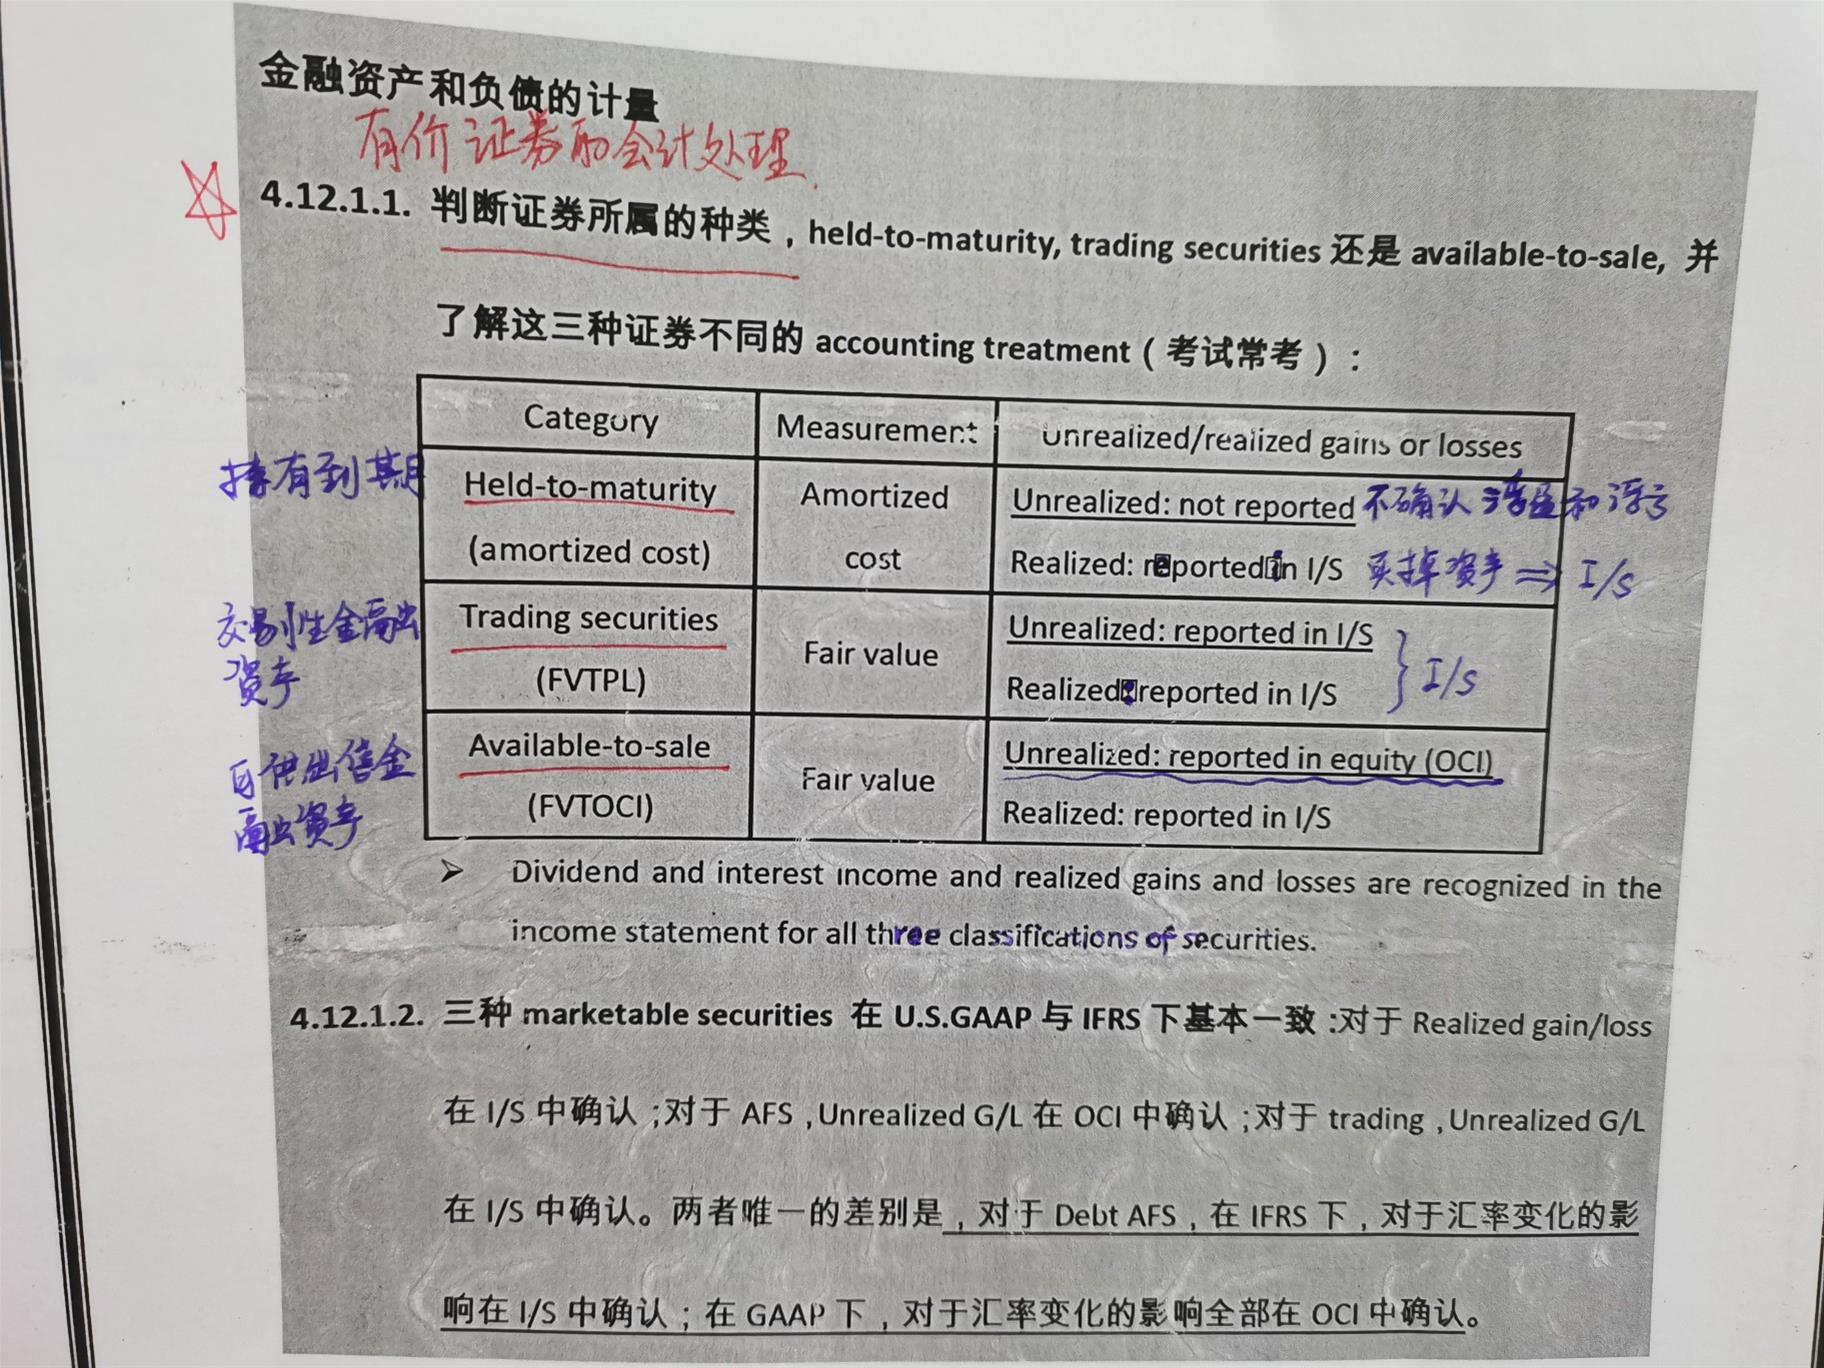 金融资产和负债的计量
有价证券的会计处理.
4.12.1.1. 判断证券所属的种类，held-to-maturity, trading securities 还是 available-to-sale, 并
了解这三种证券不同的 accounting treatment（考试常考）：
Category Measurement Unrealized/realized gains or losses
持有到期 Held-to-maturity Amortized Unrealized: not reported 不确认浮盈和浮亏
(amortized cost) cost Realized: reported in I/S 卖掉资产 => I/S
交易性金融 Trading securities Fair value Unrealized: reported in I/S
资产 (FVTPL) Realized: reported in I/S } I/S
可供出售金 Available-to-sale Fair value Unrealized: reported in equity (OCI)
融资产 (FVTOCI) Realized: reported in I/S
➢ Dividend and interest income and realized gains and losses are recognized in the
income statement for all three classifications of securities.
4.12.1.2. 三种 marketable securities 在 U.S.GAAP 与 IFRS 下基本一致:对于 Realized gain/loss
在 I/S 中确认;对于 AFS,Unrealized G/L 在 OCI 中确认;对于 trading,Unrealized G/L
在 I/S 中确认。两者唯一的差别是，对于 Debt AFS，在 IFRS 下，对于汇率变化的影
响在 I/S 中确认；在 GAAP 下，对于汇率变化的影响全部在 OCI 中确认。